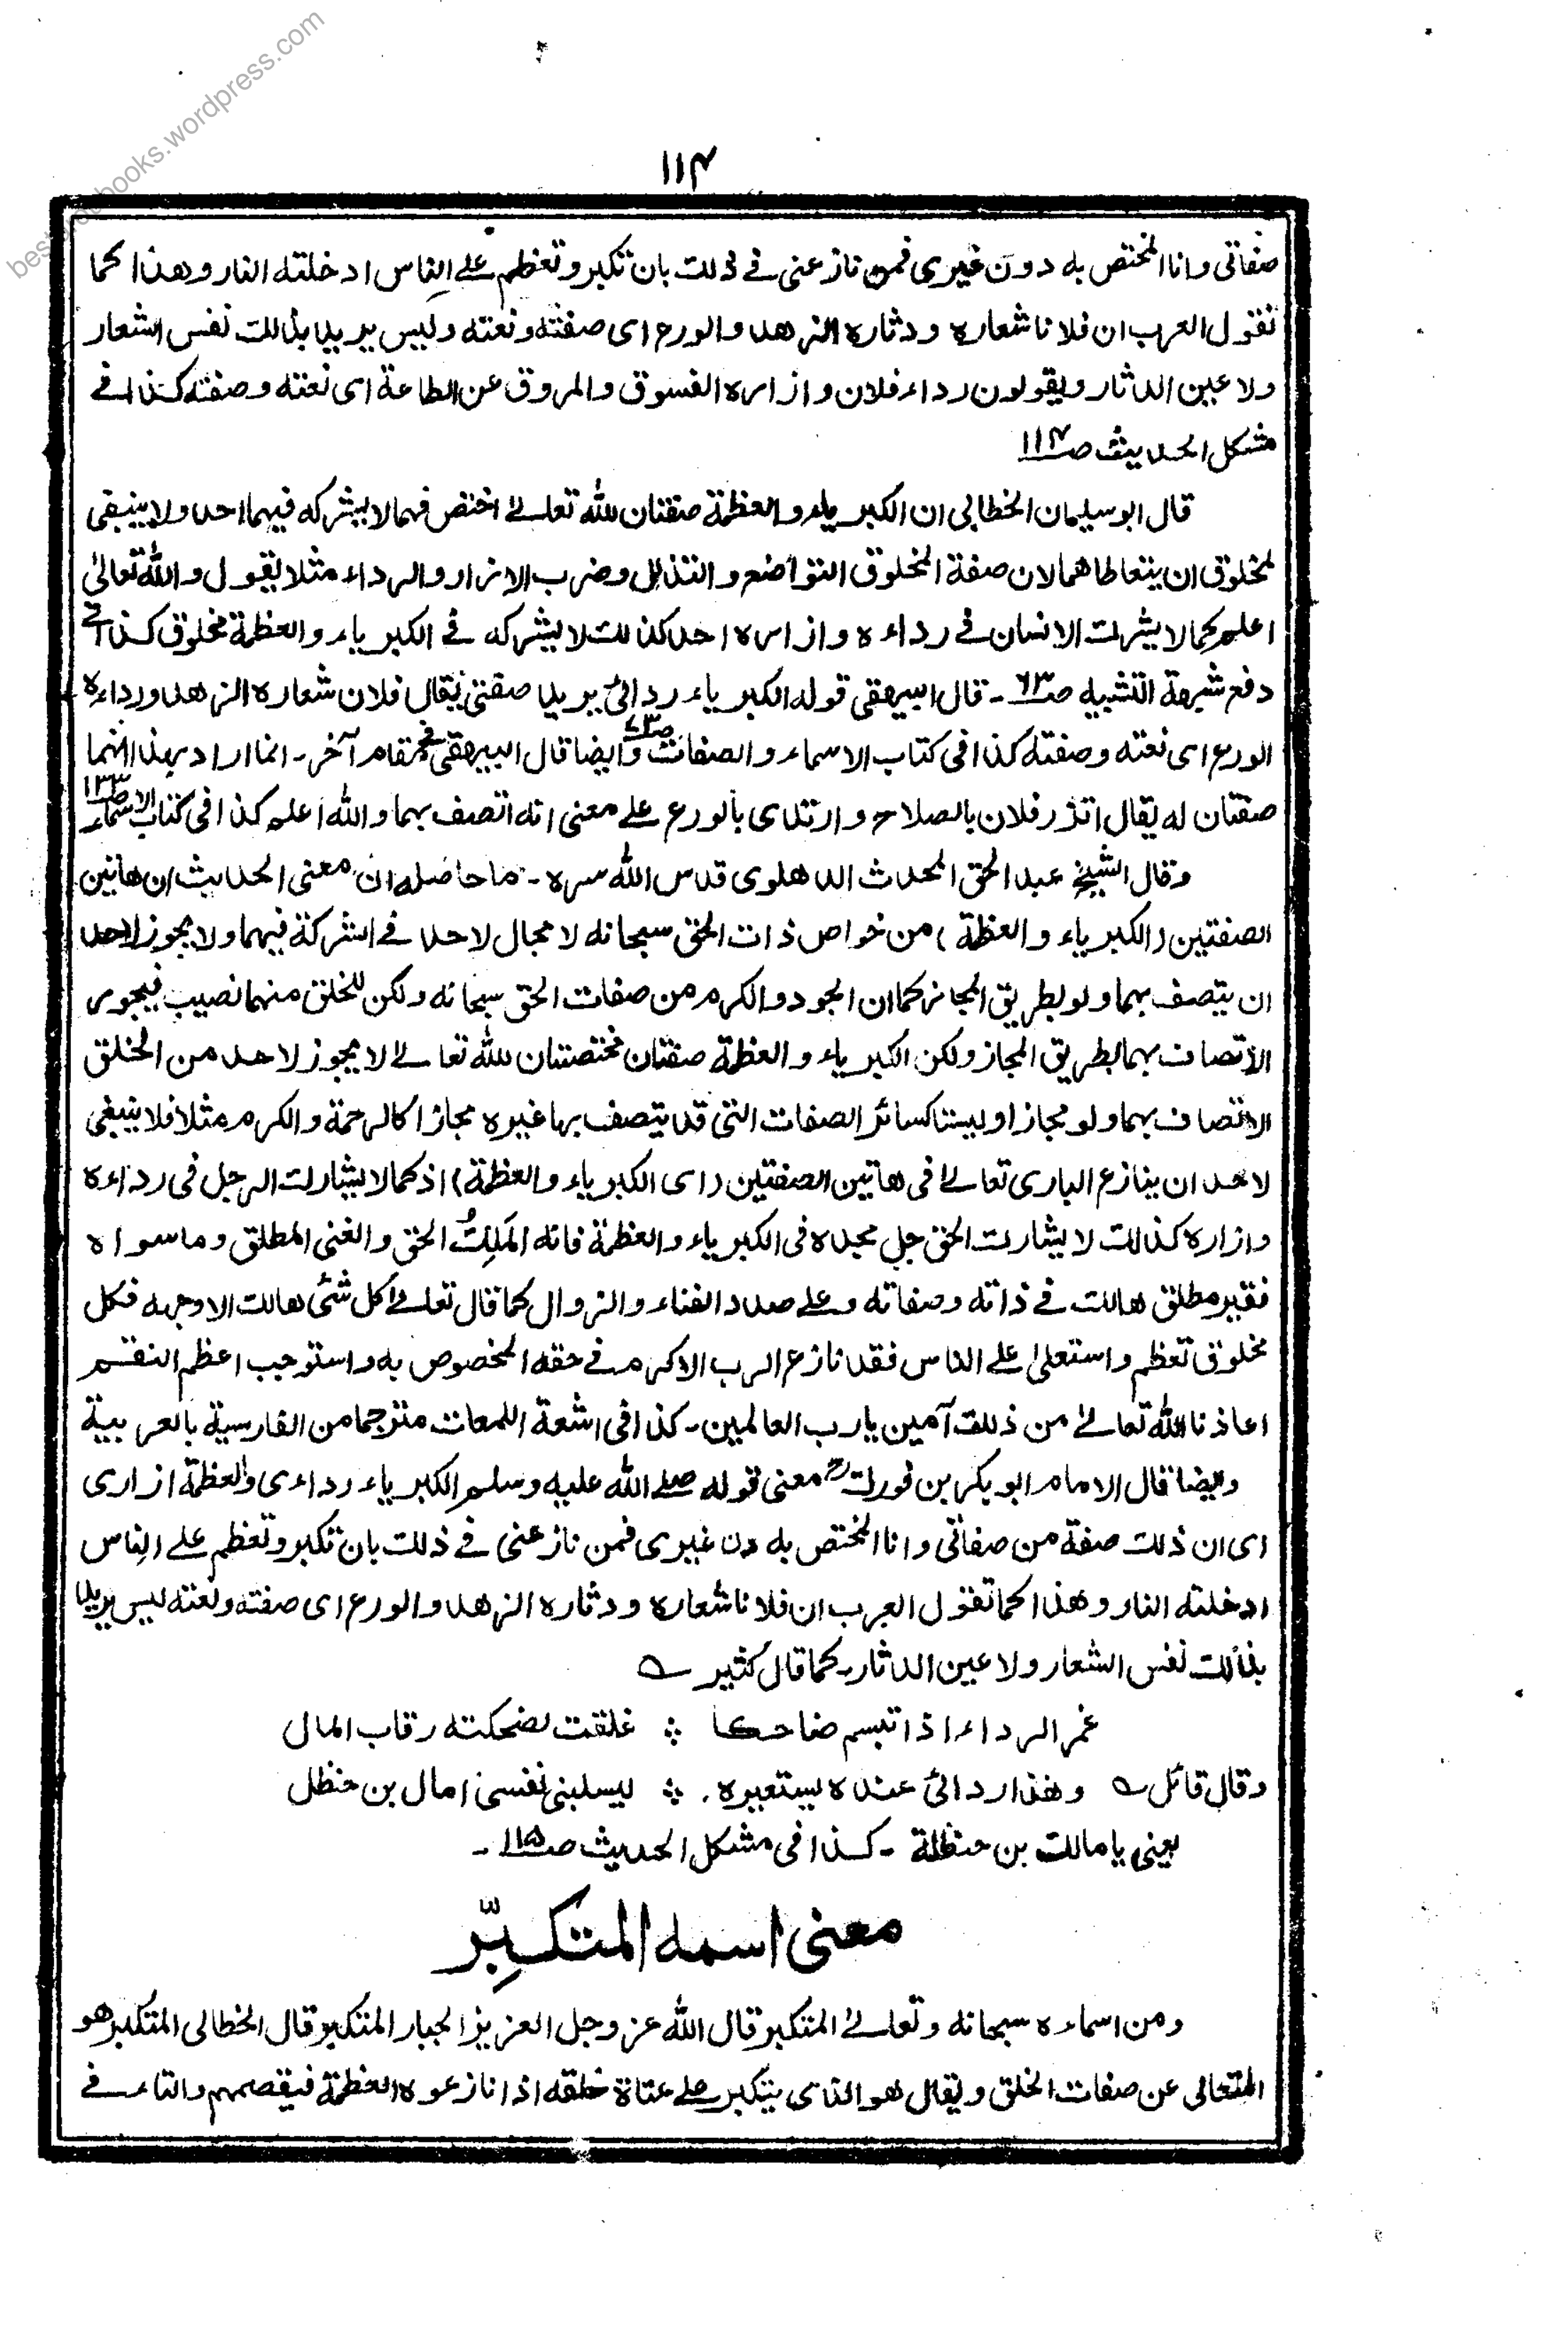 besturdubooks.wordpress.com
١١٤
صفاتی وانا المختص به دون غیری فمن نازعنی فی ذلك بان تكبر وتعظم علی الناس ادخلته النار وهذا كما
تقول العرب ان فلانا شعاره ودثاره الزهد والورع ای صفته ونعته ولیس یریدون بذلك نفس الشعار
ولا عین الدثار ویقولون رداء فلان وازاره الفسوق والمروق عن الطاعة ای نعته وصفته كذا فی
مشكل الحدیث ص١١٤
قال ابو سلیمان الخطابی ان الكبریاء والعظمة صفتان لله تعالی اختص فهما لا یشركه فیهما احد ولا ینبغی
لمخلوق ان یتعاطاهما لان صفة المخلوق التواضع والتذلل وضرب الازار والرداء مثلا یقول والله تعالیٰ
اعلم كما لا یشرك الانسان فی رداءه وازاره احد كذلك لا یشركه فی الكبریاء والعظمة مخلوق كذا فی
دفع شبهة التشبیه ص٦٣ - قال البیهقی قوله الكبریاء ردائی یرید صفتی یقال فلان شعاره الزهد ورداءه
الورع ای نعته وصفته كذا فی كتاب الاسماء والصفات ص٧٣ وایضا قال البیهقی فی مقام آخر - انما اراد بهذا انهما
صفتان له یقال اتزر فلان بالصلاح وارتدی بالورع علی معنی انه اتصف بهما والله اعلم كذا فی كتاب الاسماء ص١٣٣
وقال الشیخ عبد الحق المحدث الدهلوی قدس الله سره - ما حاصله ان معنی الحدیث ان هاتین
الصفتین (الكبریاء والعظمة) من خواص ذات الحق سبحانه لا مجال لاحد فی اشركة فیهما ولا یجوز لاحد
ان یتصف بهما ولو بطریق المجاز كما ان الجود والكرم من صفات الحق سبحانه ولكن للخلق منهما نصیب فیجوز
الاتصاف بهما بطریق المجاز ولكن الكبریاء والعظمة صفتان مختصتان لله تعالی لا یجوز لاحد من الخلق
الاتصاف بهما ولو مجازا ولیستا كسائر الصفات التی قد یتصف بها غیره مجازا كالرحمة والكرم مثلا فلا ینبغی
لاحد ان ینازع الباری تعالی فی هاتین الصفتین (ای الكبریاء والعظمة) اذ كما لا یشارك الرجل فی رداءه
وازاره كذلك لا یشارك الحق جل مجده فی الكبریاء والعظمة فانه المَلِكُ الحق والغنی المطلق وما سواه
فقیر مطلق هالك فی ذاته وصفاته وعلی صدد الفناء والزوال كما قال تعالی كل شئ هالك الا وجهه فكل
مخلوق تعظم واستعلیٰ علی الناس فقد نازع الرب الاكرم فی حقه المخصوص به واستوجب اعظم النقم
اعاذنا الله تعالی من ذلك آمین یا رب العالمین - كذا فی اشعة اللمعات مترجما من الفارسیة بالعربیة
وایضا قال الامام ابو بكر بن فورك رح معنی قوله صلی الله علیه وسلم الكبریاء رداءی والعظمة ازاری
ای ان ذلك صفة من صفاتی وانا المختص به دن غیری فمن نازعنی فی ذلك بان تكبر وتعظم علی الناس
ادخلته النار وهذا كما تقول العرب ان فلانا شعاره ودثاره الزهد والورع ای صفته ونعته لیس یرید
بذلك نفس الشعار ولا عین الدثار - كما قال كثیر ؎
غمر الرداء اذا تبسم ضاحكا ؞ غلقت لضحكته رقاب المال
وقال قائل ؎ وهذا ردائی عنده یستعیره ؞ لیسلبنی نفسی امال بن حنظل
یعنی یا مالك بن حنظلة - كذا فی مشكل الحدیث ص١١٥ -
معنی اسمه المتكبِّر
ومن اسماءه سبحانه وتعالی المتكبر قال الله عز وجل العزیز الجبار المتكبر قال الخطابی المتكبر هو
المتعالی عن صفات الخلق ویقال هو الذی یتكبر علی عتاة خلقه اذا نازعوه العظمة فیقصمهم والتاء فی